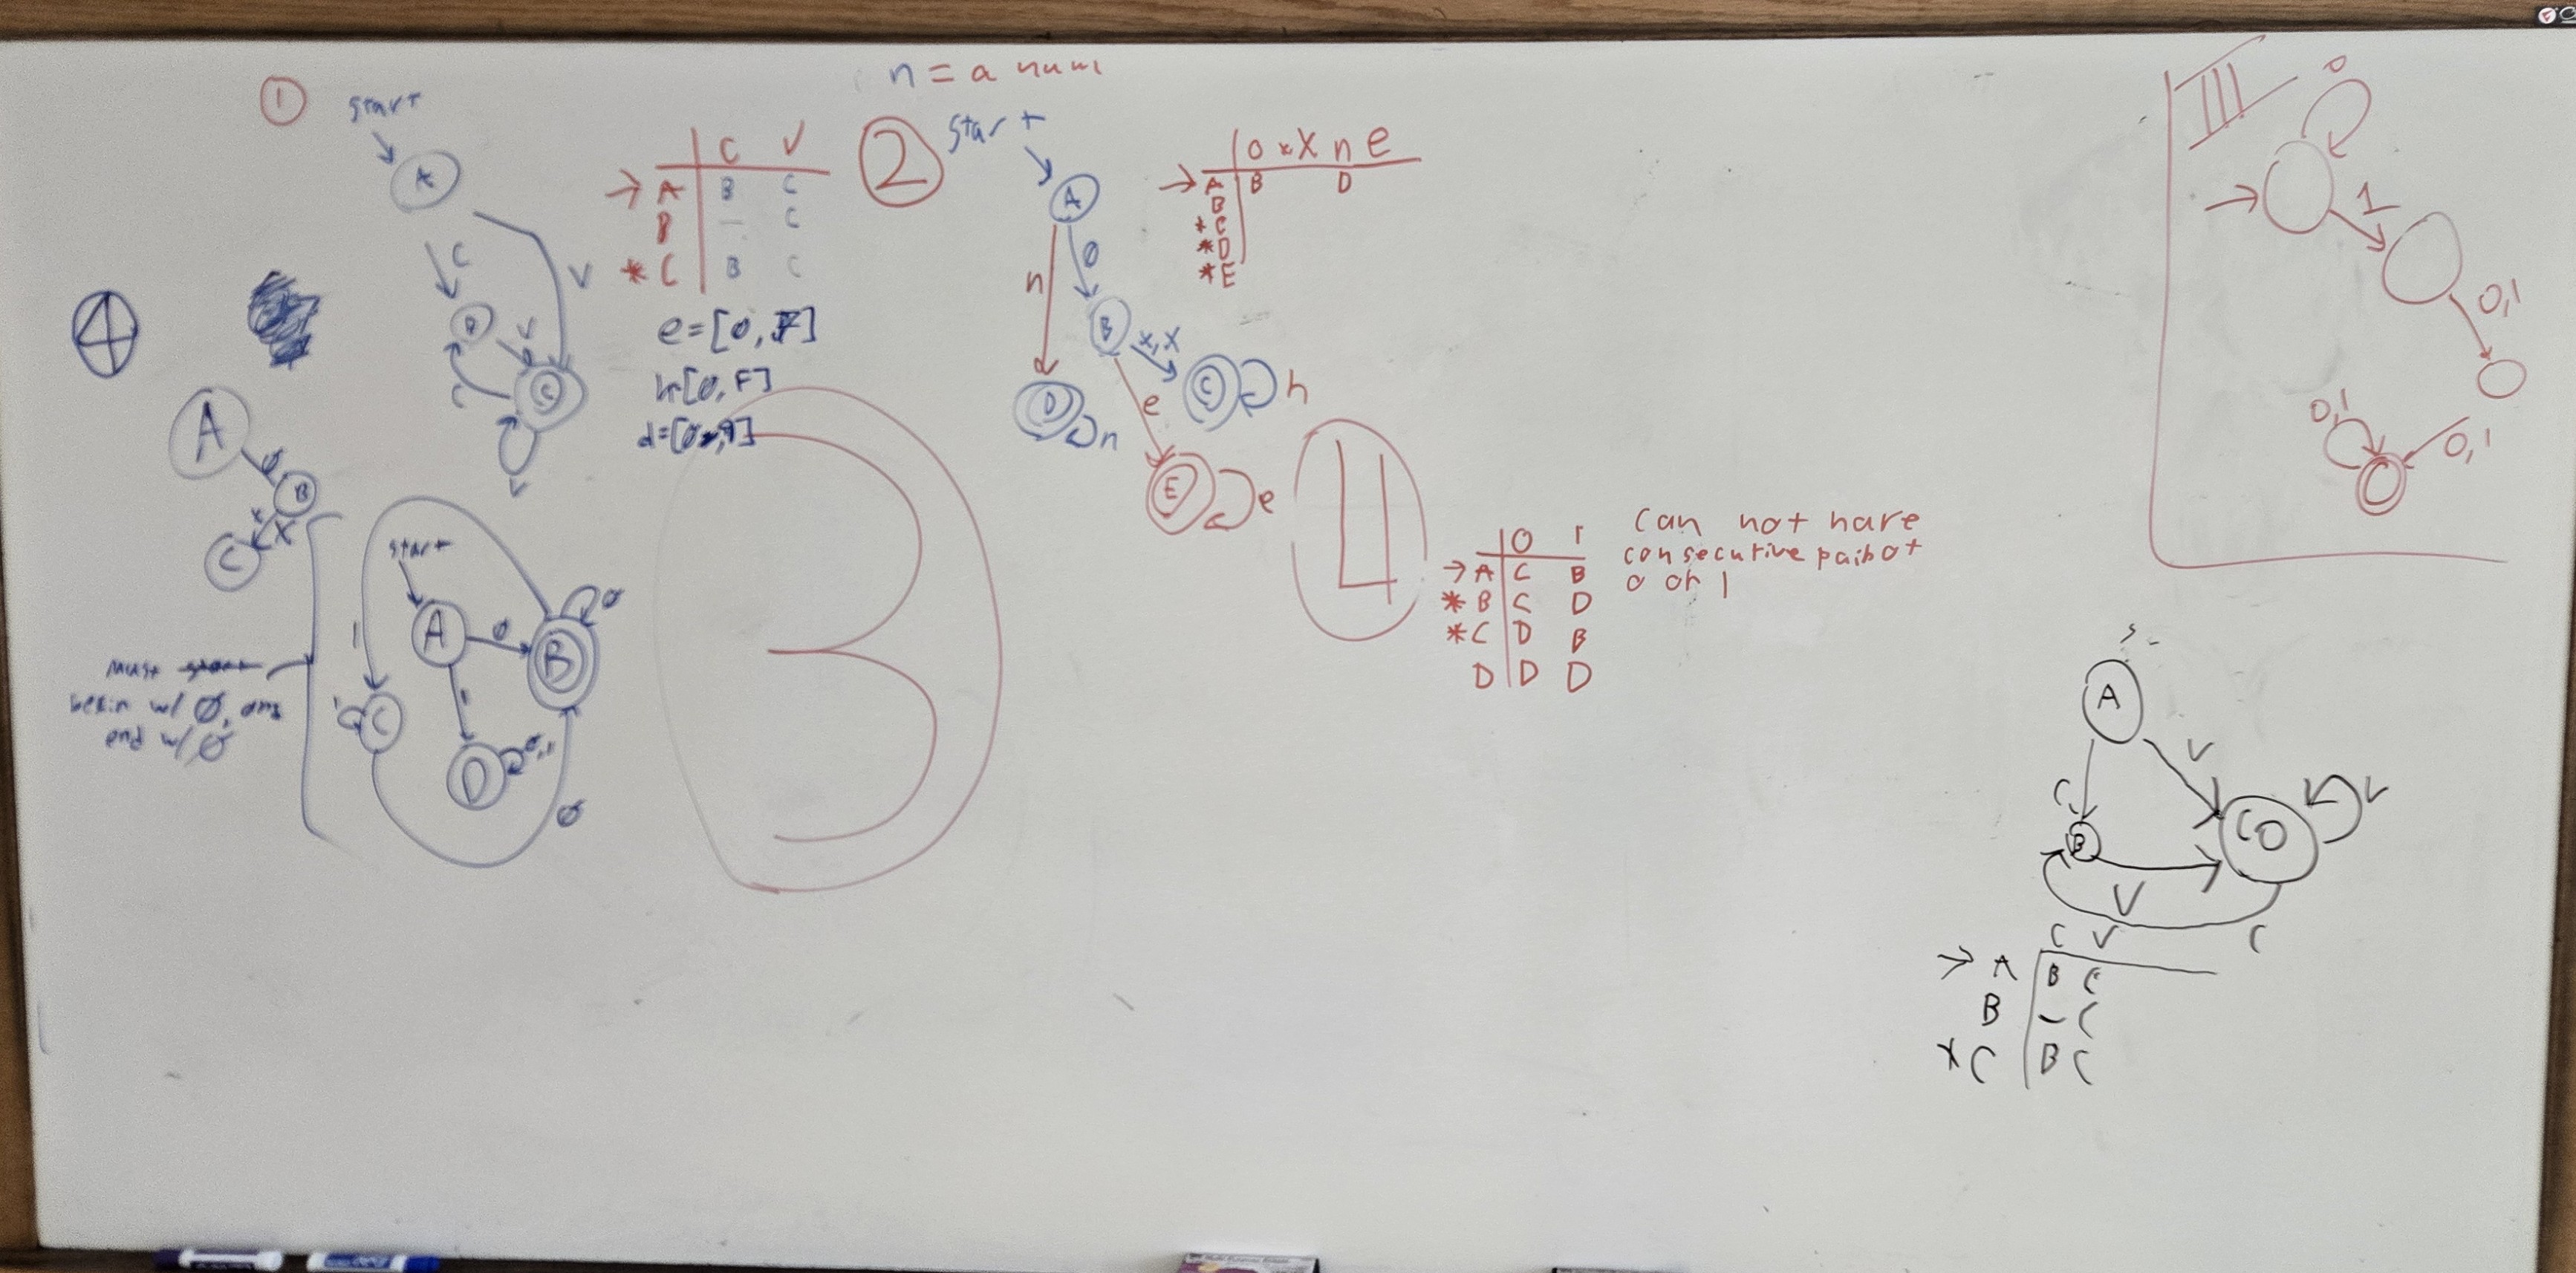 1
start
A
C
V
B
V
C
C
V
C V
→ A B C
B — C
* C B C
e=[0,7]
h[0,F]
n = a num
2
start
A
n
0
B
x, X
C
h
D
n
e
E
e
0 x X n e
→ A B D
B
* C
* D
* E
III
0
1
0,1
0,1
0,1
4
A
0
B
x
X
C
start
A
0
B
0
1
1
C
1
D
0,1
0
must start
begin w/ 0, and
end w/ 0
3
4
0 1
→ A C B
* B C D
* C D B
D D D
can not have
consecutive
0 or 1
A
V
C
B
V
C
V
C
C V
→ A B C
B — C
* C B C